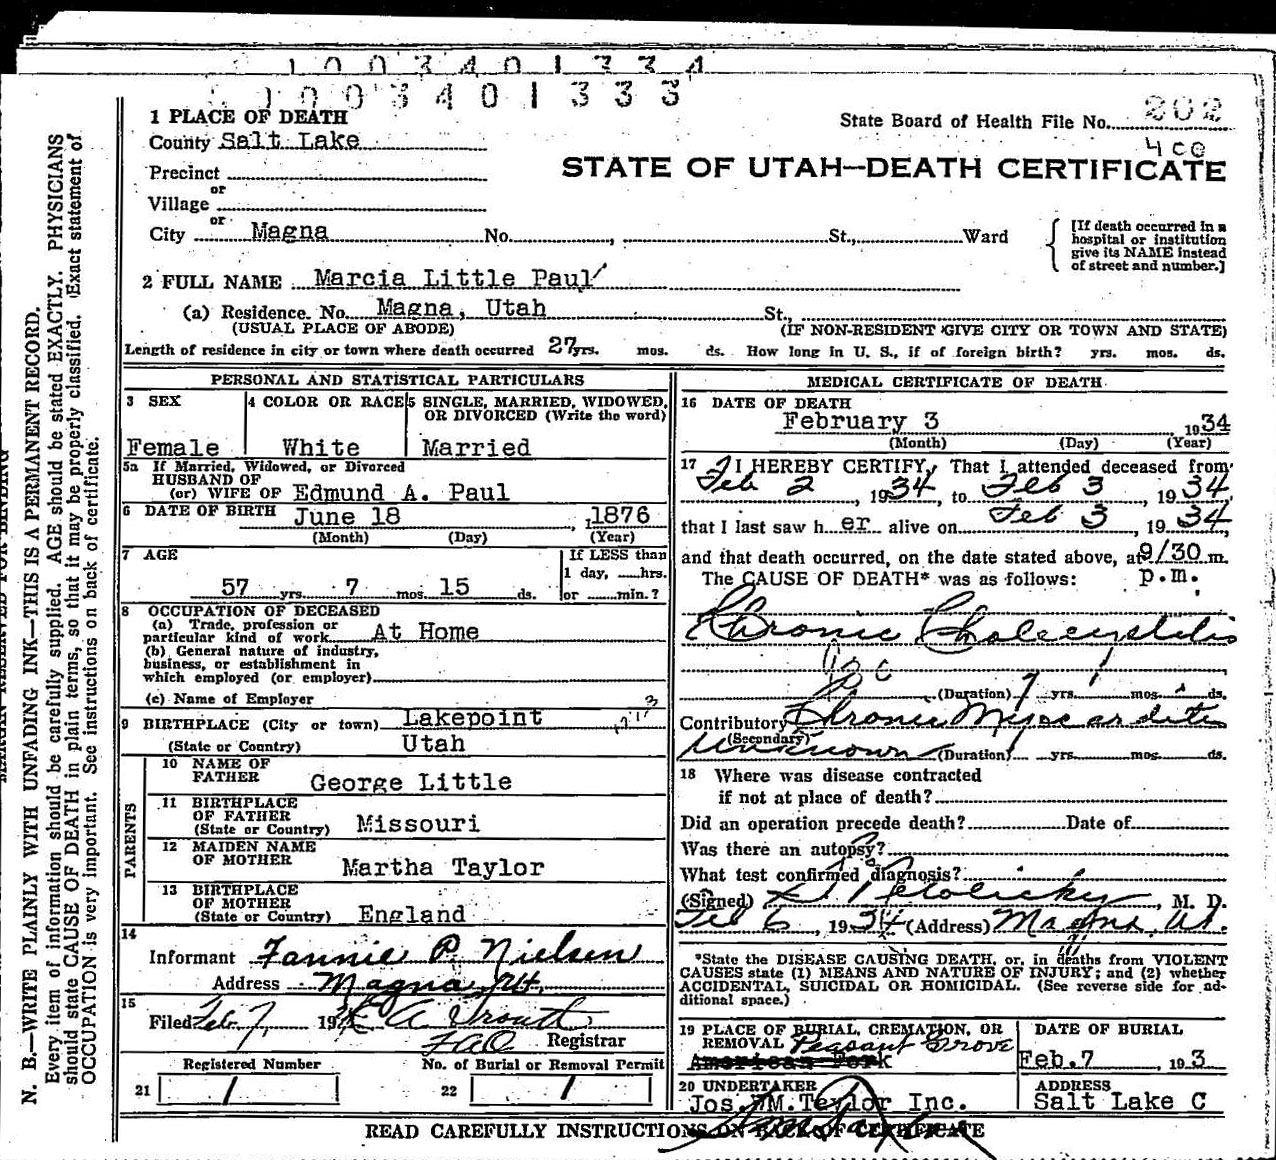 1003401334
1003401333
1 PLACE OF DEATH
County Salt Lake
State Board of Health File No. 202
400
STATE OF UTAH—DEATH CERTIFICATE
Precinct
or
Village
or
City Magna No. , St., Ward
[If death occurred in a hospital or institution give its NAME instead of street and number.]
2 FULL NAME Marcia Little Paul
(a) Residence. No. Magna, Utah St.,
(USUAL PLACE OF ABODE) (IF NON-RESIDENT GIVE CITY OR TOWN AND STATE)
Length of residence in city or town where death occurred 27 yrs. mos. ds. How long in U. S., if of foreign birth? yrs. mos. ds.
PERSONAL AND STATISTICAL PARTICULARS
3 SEX
Female
4 COLOR OR RACE
White
5 SINGLE, MARRIED, WIDOWED, OR DIVORCED (Write the word)
Married
5a If Married, Widowed, or Divorced
HUSBAND OF
(or) WIFE OF Edmund A. Paul
6 DATE OF BIRTH June 18 , 1876
(Month) (Day) (Year)
7 AGE
57 yrs. 7 mos. 15 ds.
If LESS than
1 day, hrs.
or min.?
8 OCCUPATION OF DECEASED
(a) Trade, profession or
particular kind of work At Home
(b) General nature of industry,
business, or establishment in
which employed (or employer)
(c) Name of Employer
9 BIRTHPLACE (City or town) Lakepoint
(State or Country) Utah
PARENTS
10 NAME OF
FATHER George Little
11 BIRTHPLACE
OF FATHER
(State or Country) Missouri
12 MAIDEN NAME
OF MOTHER Martha Taylor
13 BIRTHPLACE
OF MOTHER
(State or Country) England
14
Informant Fannie P. Nielsen
Address Magna Ut.
15
Filed Feb 7, 19
Registrar
Registered Number No. of Burial or Removal Permit
21 1 22 1
MEDICAL CERTIFICATE OF DEATH
16 DATE OF DEATH
February 3 1934
(Month) (Day) (Year)
17 I HEREBY CERTIFY, That I attended deceased from
Feb 2, 1934, to Feb 3, 1934,
that I last saw her alive on Feb 3, 1934,
and that death occurred, on the date stated above, at 9/30 m.
The CAUSE OF DEATH* was as follows: p.m.
Chronic Cholecystitis
(Duration) yrs. mos. ds.
Contributory Chronic Myocarditis
(Secondary)
Unknown (Duration) yrs. mos. ds.
18 Where was disease contracted
if not at place of death?
Did an operation precede death? Date of
Was there an autopsy?
What test confirmed diagnosis?
(Signed) , M. D.
Feb 6, 1934 (Address) Magna, Ut.
*State the DISEASE CAUSING DEATH, or, in deaths from VIOLENT
CAUSES state (1) MEANS AND NATURE OF INJURY; and (2) whether
ACCIDENTAL, SUICIDAL OR HOMICIDAL. (See reverse side for ad-
ditional space.)
19 PLACE OF BURIAL, CREMATION, OR
REMOVAL Pleasant Grove
American Fork
DATE OF BURIAL
Feb.7 , 193
20 UNDERTAKER
Jos. WM. Taylor Inc.
ADDRESS
Salt Lake C
READ CAREFULLY INSTRUCTIONS ON BACK OF CERTIFICATE
MARGIN RESERVED FOR BINDING
N. B.—WRITE PLAINLY WITH UNFADING INK—THIS IS A PERMANENT RECORD.
Every item of information should be carefully supplied. AGE should be stated EXACTLY. PHYSICIANS
should state CAUSE OF DEATH in plain terms, so that it may be properly classified. Exact statement of
OCCUPATION is very important. See instructions on back of certificate.